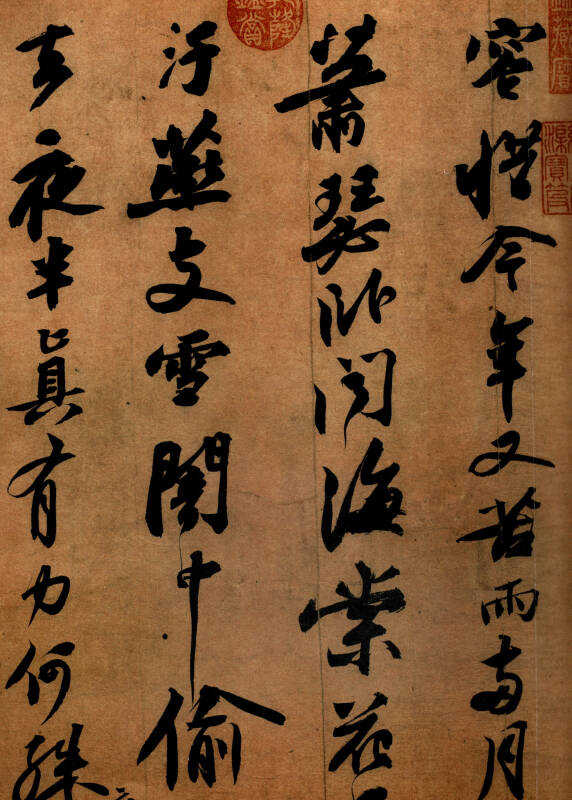 容惜今年又苦雨兩月
蕭瑟臥聞海棠花
汙燕支雪闇中偷
去夜半真有力何殊